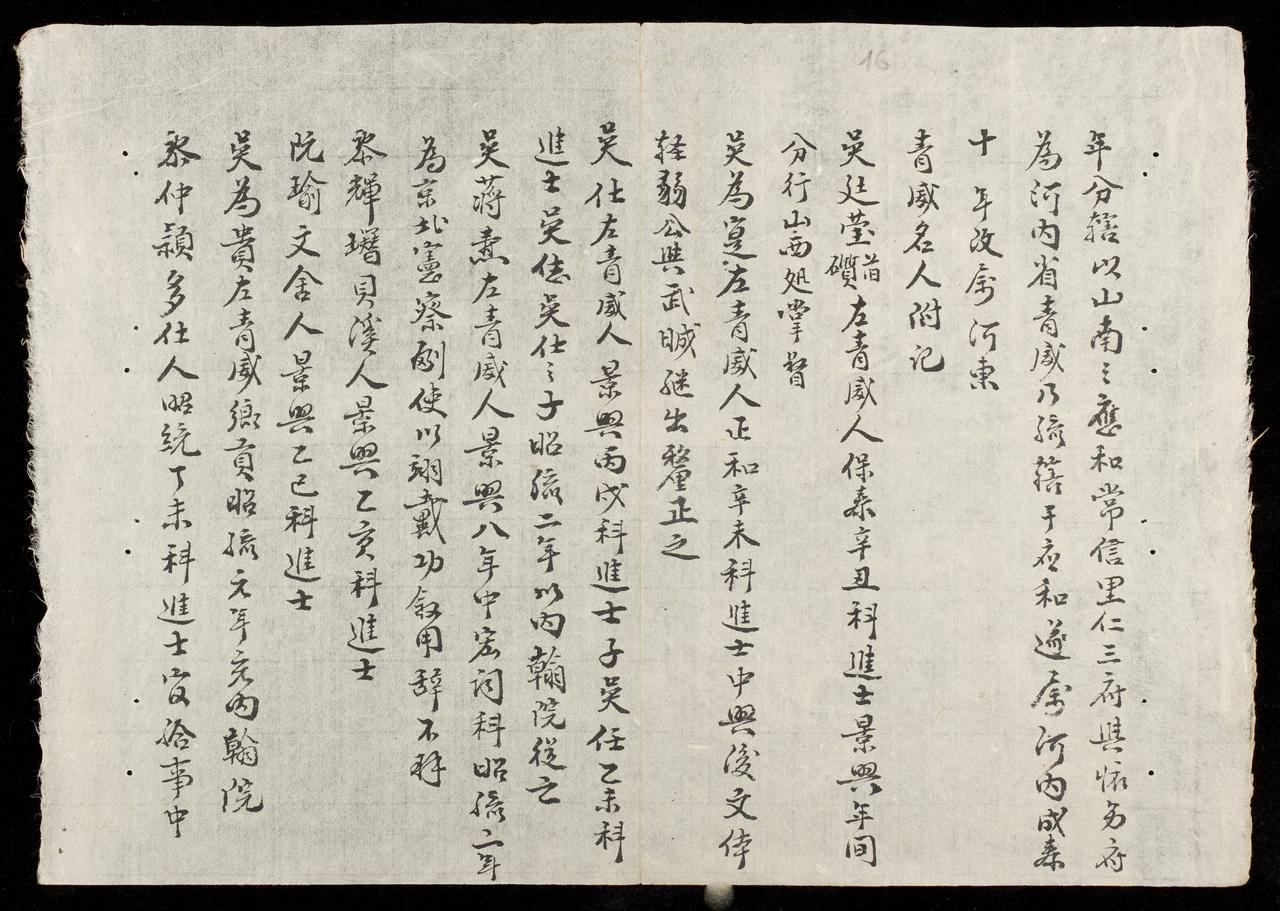 16
年分轄以山南之應和常信里仁三府與懷安府
為河内省青威乃統轄于应和遂属河内成泰
十年改属河東
青威名人附記
吳廷瑩 礩 左青威人保泰辛丑科進士景興年间
分行山西処掌督
吳為寔左青威人正和辛未科進士中興後文体
轻弱公與武晠継出釐正之
吳仕左青威人景興丙戌科進士子吳任乙未科
進士吳 吳仕之子昭統二年以内翰院從亡
吳蔣 左青威人景興八年中宏词科昭統二年
為京北憲察副使以翊戴功叙用辞不拜
黎輝 貝溪人景興乙亥科進士
阮瑜文舍人景興乙巳科進士
吳為貴左青威鄉貢昭統元年充内翰院
黎仲 多仕人昭統丁未科進士官給事中